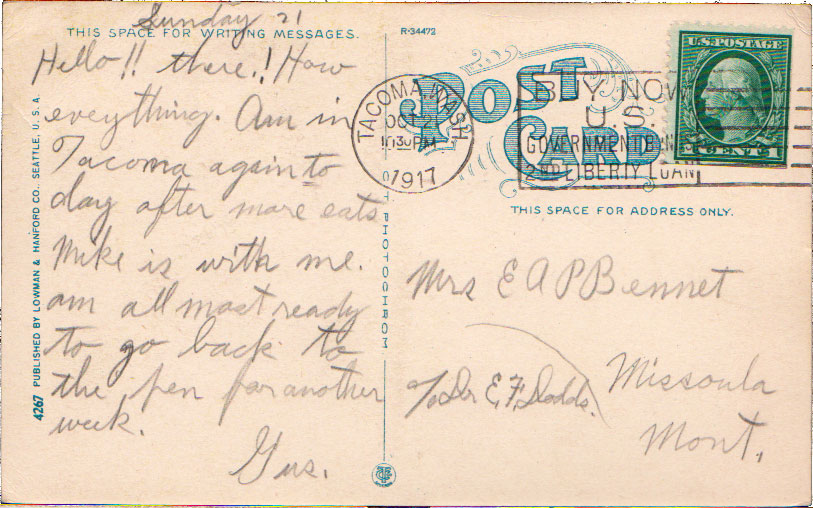 Sunday 21
THIS SPACE FOR WRITING MESSAGES.
Hello!! there!! How
eveything. Am in
Tacoma again to
day after more eats
Mike is with me.
am all most ready
to go back to
the pen for another
week.
Gus.
4267 PUBLISHED BY LOWMAN & HANFORD CO., SEATTLE, U. S. A.
R-34472
POST CARD
TACOMA, WASH
OCT 21
1030PM
1917
BUY NOW
U.S.
GOVERNMENT BONDS
2ND LIBERTY LOAN
U.S. POSTAGE
1 CENT 1
PHOTOCHROM
THIS SPACE FOR ADDRESS ONLY.
Mrs E A P Bennet
c/o Dr E. F. Dodds.
Missoula
Mont.